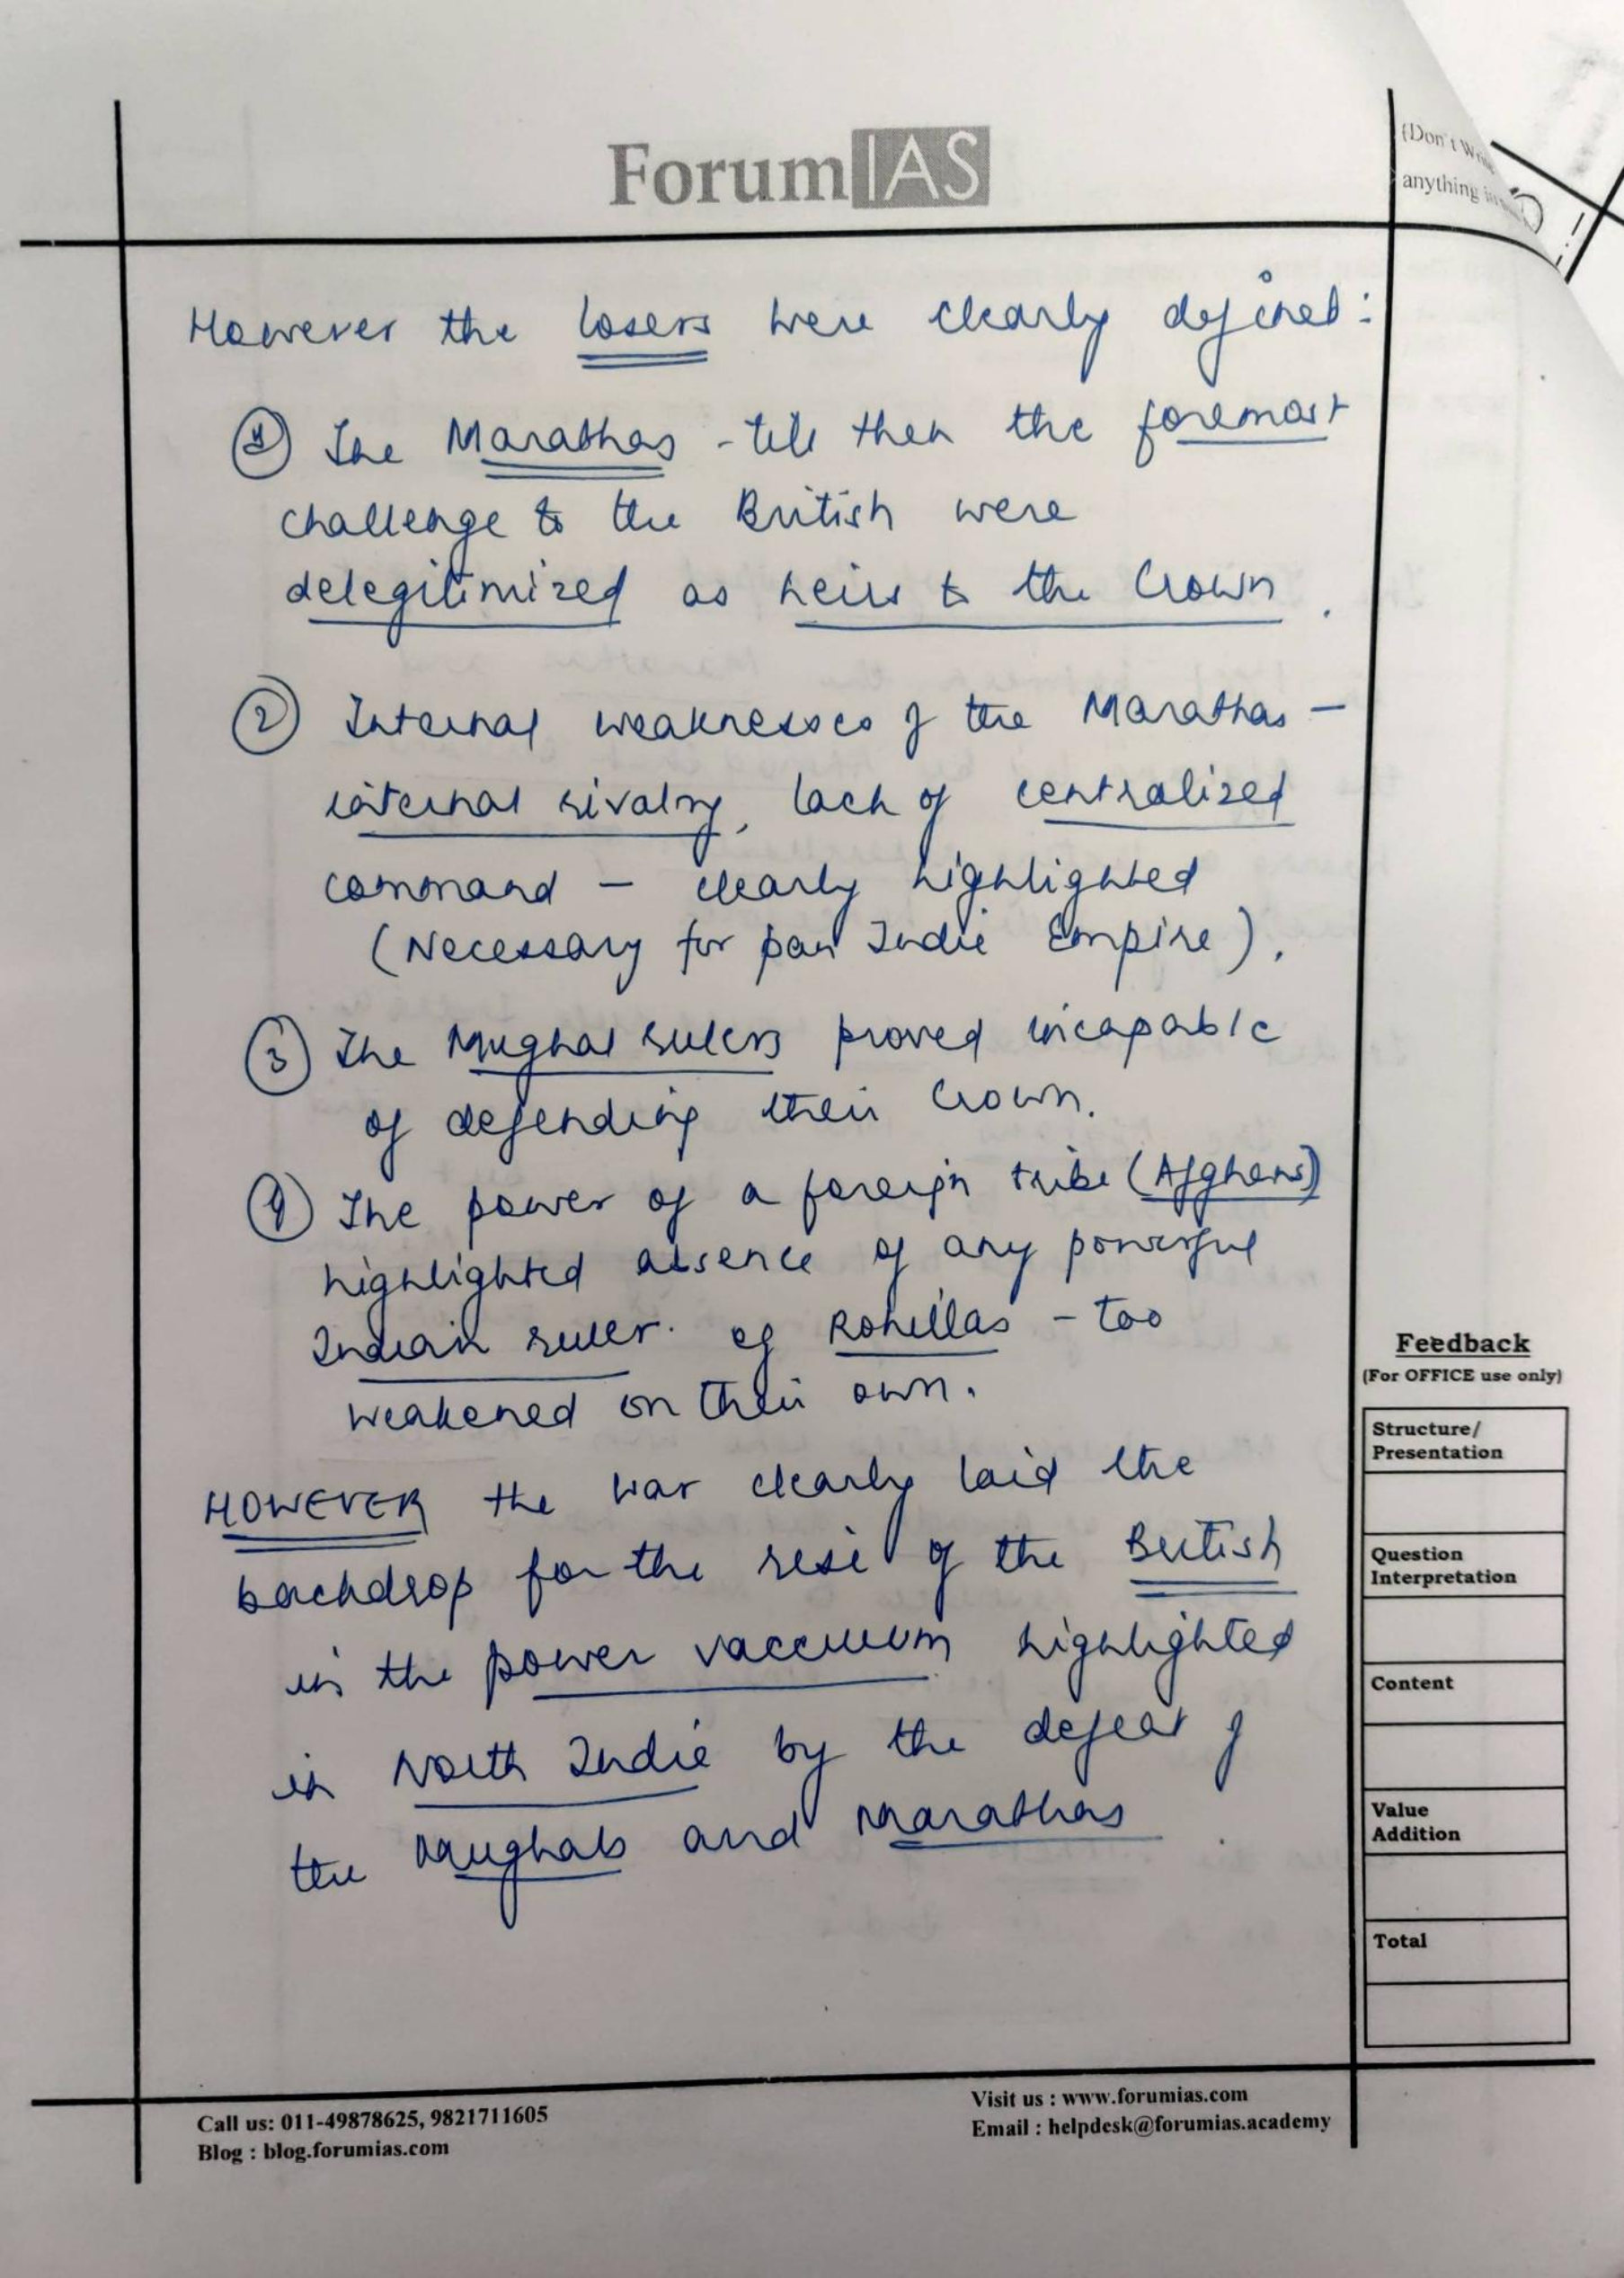 ForumIAS
(Don't Write
anything in
However the losers were clearly defined:
① The Marathas - till then the foremost
challenge to the British were
delegitimized as heirs to the Crown.
② Internal weaknesses of the Marathas -
internal rivalry, lack of centralized
command - clearly highlighted
(Necessary for pan India Empire).
③ The Mughal rulers proved incapable
of defending their Crown.
④ The power of a foreign tribe (Afghans)
highlighted absence of any powerful
Indian ruler. eg Rohillas - too
weakened on their own.
HOWEVER the war clearly laid the
backdrop for the rise of the British
in the power vaccuum highlighted
in North India by the defeat of
the Mughals and Marathas.
Feedback
(For OFFICE use only)
Structure/
Presentation
Question
Interpretation
Content
Value
Addition
Total
Call us: 011-49878625, 9821711605
Blog : blog.forumias.com
Visit us : www.forumias.com
Email : helpdesk@forumias.academy